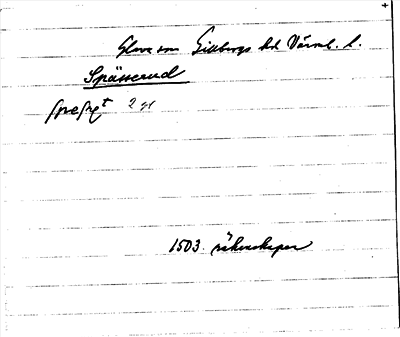 Glava sn Gillbergs hd Värml. l.
Spässerud
spesryt 2 gr
1503. räkenskaper